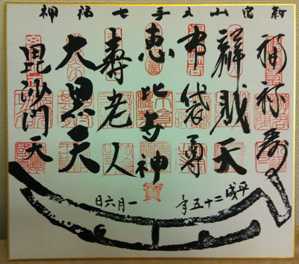 新宿山之手七福神
福禄寿
辨財天
布袋尊
恵比寿神
壽老人
大黒天
毘沙門天
平成二十五年
一月六日